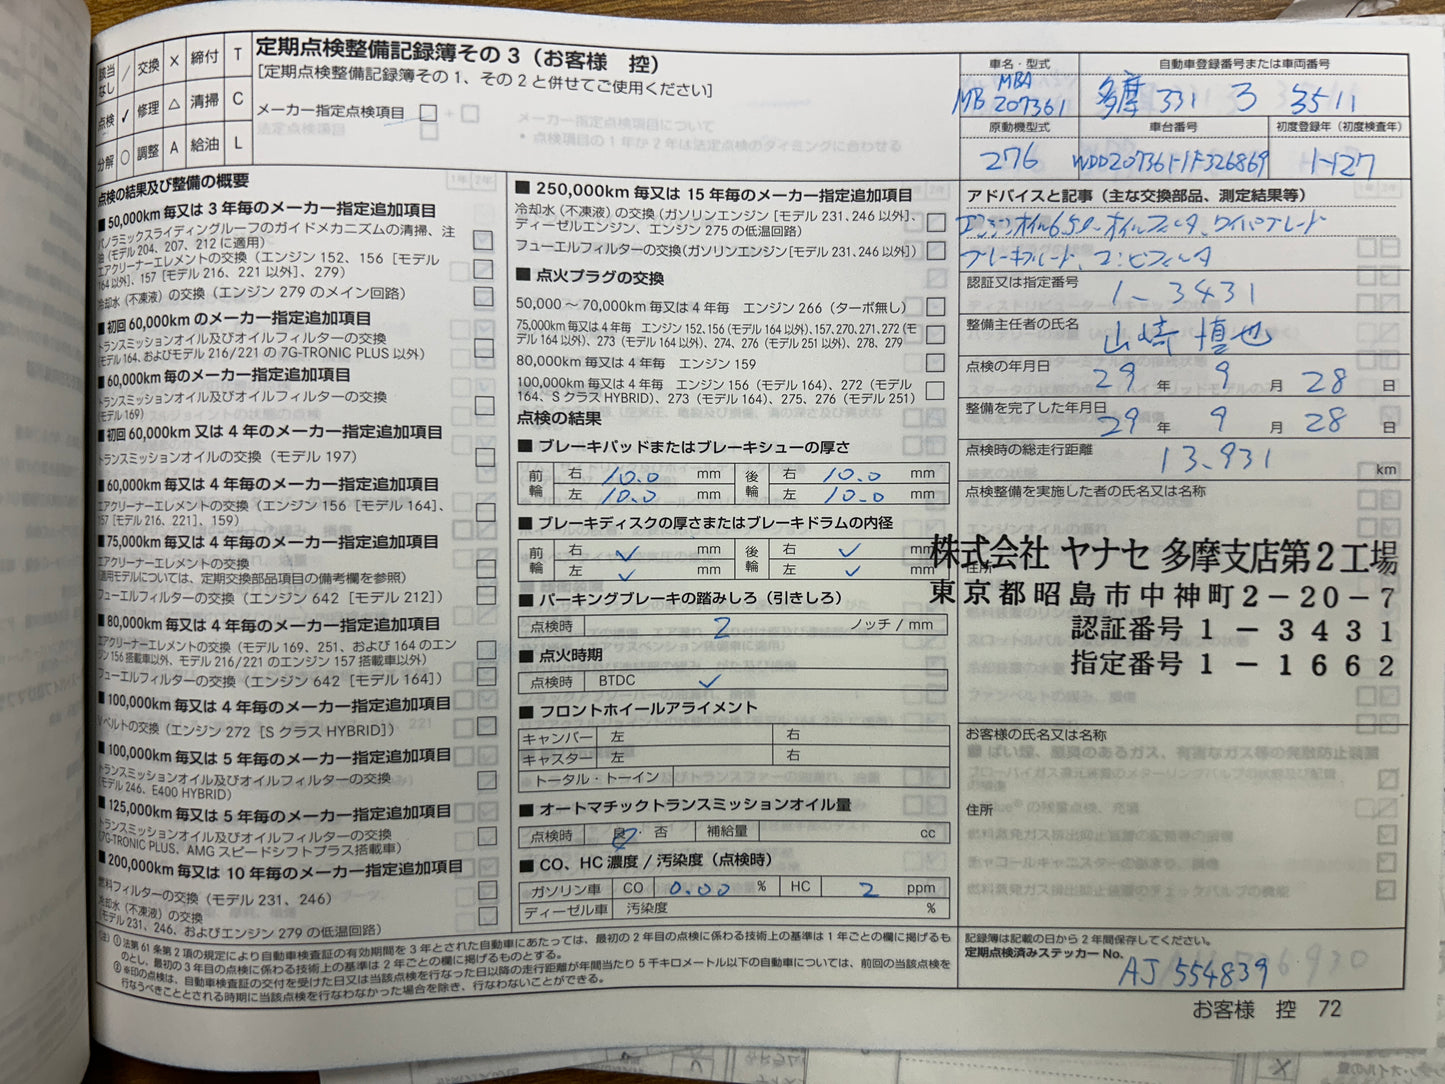 該当なし ／ 交換 × 締付 T
点検 ✓ 修理 △ 清掃 C
分解 ○ 調整 A 給油 L
定期点検整備記録簿その３（お客様　控）
［定期点検整備記録簿その１、その２と併せてご使用ください］
メーカー指定点検項目 □ + □
法定点検項目 □
メーカー指定点検項目について
• 点検項目の１年か２年は法定点検のタイミングに合わせる
点検の結果及び整備の概要
■ 50,000km 毎又は 3 年毎のメーカー指定追加項目
パノラミックスライディングルーフのガイドメカニズムの清掃、注
油（モデル 204、207、212 に適用）
エアクリーナーエレメントの交換（エンジン 152、156［モデル
164 以外］、157［モデル 216、221 以外］、279）
冷却水（不凍液）の交換（エンジン 279 のメイン回路）
■ 初回 60,000km のメーカー指定追加項目
トランスミッションオイル及びオイルフィルターの交換
（モデル 164、およびモデル 216/221 の 7G-TRONIC PLUS 以外）
■ 60,000km 毎のメーカー指定追加項目
トランスミッションオイル及びオイルフィルターの交換
（モデル 169）
■ 初回 60,000km 又は 4 年のメーカー指定追加項目
トランスミッションオイルの交換（モデル 197）
■ 60,000km 毎又は 4 年毎のメーカー指定追加項目
エアクリーナーエレメントの交換（エンジン 156［モデル 164］、
157［モデル 216、221］、159）
■ 75,000km 毎又は 4 年毎のメーカー指定追加項目
エアクリーナーエレメントの交換
（適用モデルについては、定期交換部品項目の備考欄を参照）
フューエルフィルターの交換（エンジン 642［モデル 212］）
■ 80,000km 毎又は 4 年毎のメーカー指定追加項目
エアクリーナーエレメントの交換（モデル 169、251、および 164 のエン
ジン 156 搭載車以外、モデル 216/221 のエンジン 157 搭載車以外）
フューエルフィルターの交換（エンジン 642［モデル 164］）
■ 100,000km 毎又は 4 年毎のメーカー指定追加項目
Vベルトの交換（エンジン 272［S クラス HYBRID］）
■ 100,000km 毎又は 5 年毎のメーカー指定追加項目
トランスミッションオイル及びオイルフィルターの交換
（モデル 246、E400 HYBRID）
■ 125,000km 毎又は 5 年毎のメーカー指定追加項目
トランスミッションオイル及びオイルフィルターの交換
（7G-TRONIC PLUS、AMG スピードシフトプラス搭載車）
■ 200,000km 毎又は 10 年毎のメーカー指定追加項目
燃料フィルターの交換（モデル 231、246）
冷却水（不凍液）の交換
（モデル 231、246、およびエンジン 279 の低温回路）
■ 250,000km 毎又は 15 年毎のメーカー指定追加項目
冷却水（不凍液）の交換（ガソリンエンジン［モデル 231、246 以外］、
ディーゼルエンジン、エンジン 275 の低温回路）
フューエルフィルターの交換（ガソリンエンジン［モデル 231、246 以外］）
■ 点火プラグの交換
50,000 ～ 70,000km 毎又は 4 年毎　エンジン 266（ターボ無し）
75,000km 毎又は 4 年毎　エンジン 152、156（モデル 164 以外）、157、270、271、272（モ
デル 164 以外）、273（モデル 164 以外）、274、276（モデル 251 以外）、278、279
80,000km 毎又は 4 年毎　エンジン 159
100,000km 毎又は 4 年毎　エンジン 156（モデル 164）、272（モデル
164、S クラス HYBRID）、273（モデル 164）、275、276（モデル 251）
点検の結果
■ ブレーキパッドまたはブレーキシューの厚さ
前輪 右 10.0 mm 後輪 右 10.0 mm
左 10.0 mm 左 10.0 mm
■ ブレーキディスクの厚さまたはブレーキドラムの内径
前輪 右 ✓ mm 後輪 右 ✓ mm
左 ✓ mm 左 ✓ mm
■ パーキングブレーキの踏みしろ（引きしろ）
点検時 2 ノッチ / mm
■ 点火時期
点検時 BTDC ✓
■ フロントホイールアライメント
キャンバー 左 右
キャスター 左 右
トータル・トーイン
■ オートマチックトランスミッションオイル量
点検時 良・否 補給量 cc
■ CO、HC 濃度 / 汚染度（点検時）
ガソリン車 CO 0.00 % HC 2 ppm
ディーゼル車 汚染度 %
車名・型式 自動車登録番号または車両番号
MBA
MB 207361 多摩 331 ろ 3511
原動機型式 車台番号 初度登録年（初度検査年）
276 WDD2073611F326869 H27
アドバイスと記事（主な交換部品、測定結果等）
エンジンオイル6.5ℓ、オイルフィルタ、ワイパーブレード
ブレーキフルード、コンビフィルタ
認証又は指定番号
1-3431
整備主任者の氏名
山崎
点検の年月日
29 年 9 月 28 日
整備を完了した年月日
29 年 9 月 28 日
点検時の総走行距離
13,931 km
点検整備を実施した者の氏名又は名称
株式会社 ヤナセ 多摩支店第２工場
住所
東京都昭島市中神町２－２０－７
認証番号１－３４３１
指定番号１－１６６２
お客様の氏名又は名称
住所
（注）① 法第 61 条第 2 項の規定により自動車検査証の有効期間を 3 年とされた自動車にあたっては、最初の 2 年目の点検に係わる技術上の基準は 1 年ごとの欄に掲げるも
のとし、最初の 3 年目の点検に係わる技術上の基準は 2 年ごとの欄に掲げるものとする。
② ※印の点検は、自動車検査証の交付を受けた日又は当該点検を行なった日以降の走行距離が年間当たり 5 千キロメートル以下の自動車については、前回の当該点検を
行なうべきこととされる時期に当該点検を行なわなかった場合を除き、行なわないことができる。
記録簿は記載の日から 2 年間保存してください。
定期点検済みステッカー No.
AJ 554839
お客様　控　72